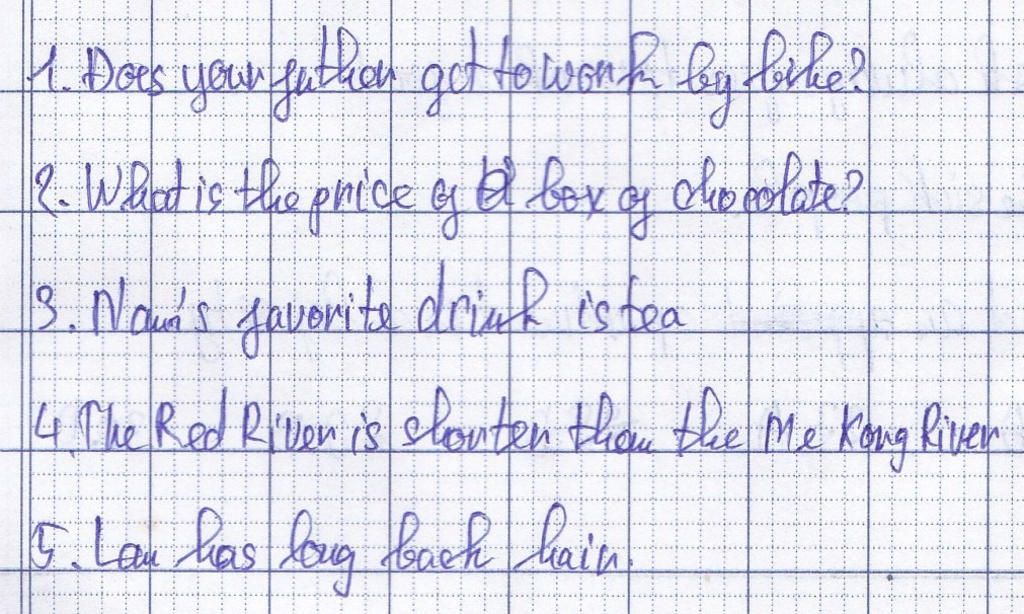 1. Does your father got to work by bike?
2. What is the price of a box of chocolate?
3. Nam's favorite drink is tea
4. The Red River is shorter than the Me Kong River
5. Lan has long back hair.